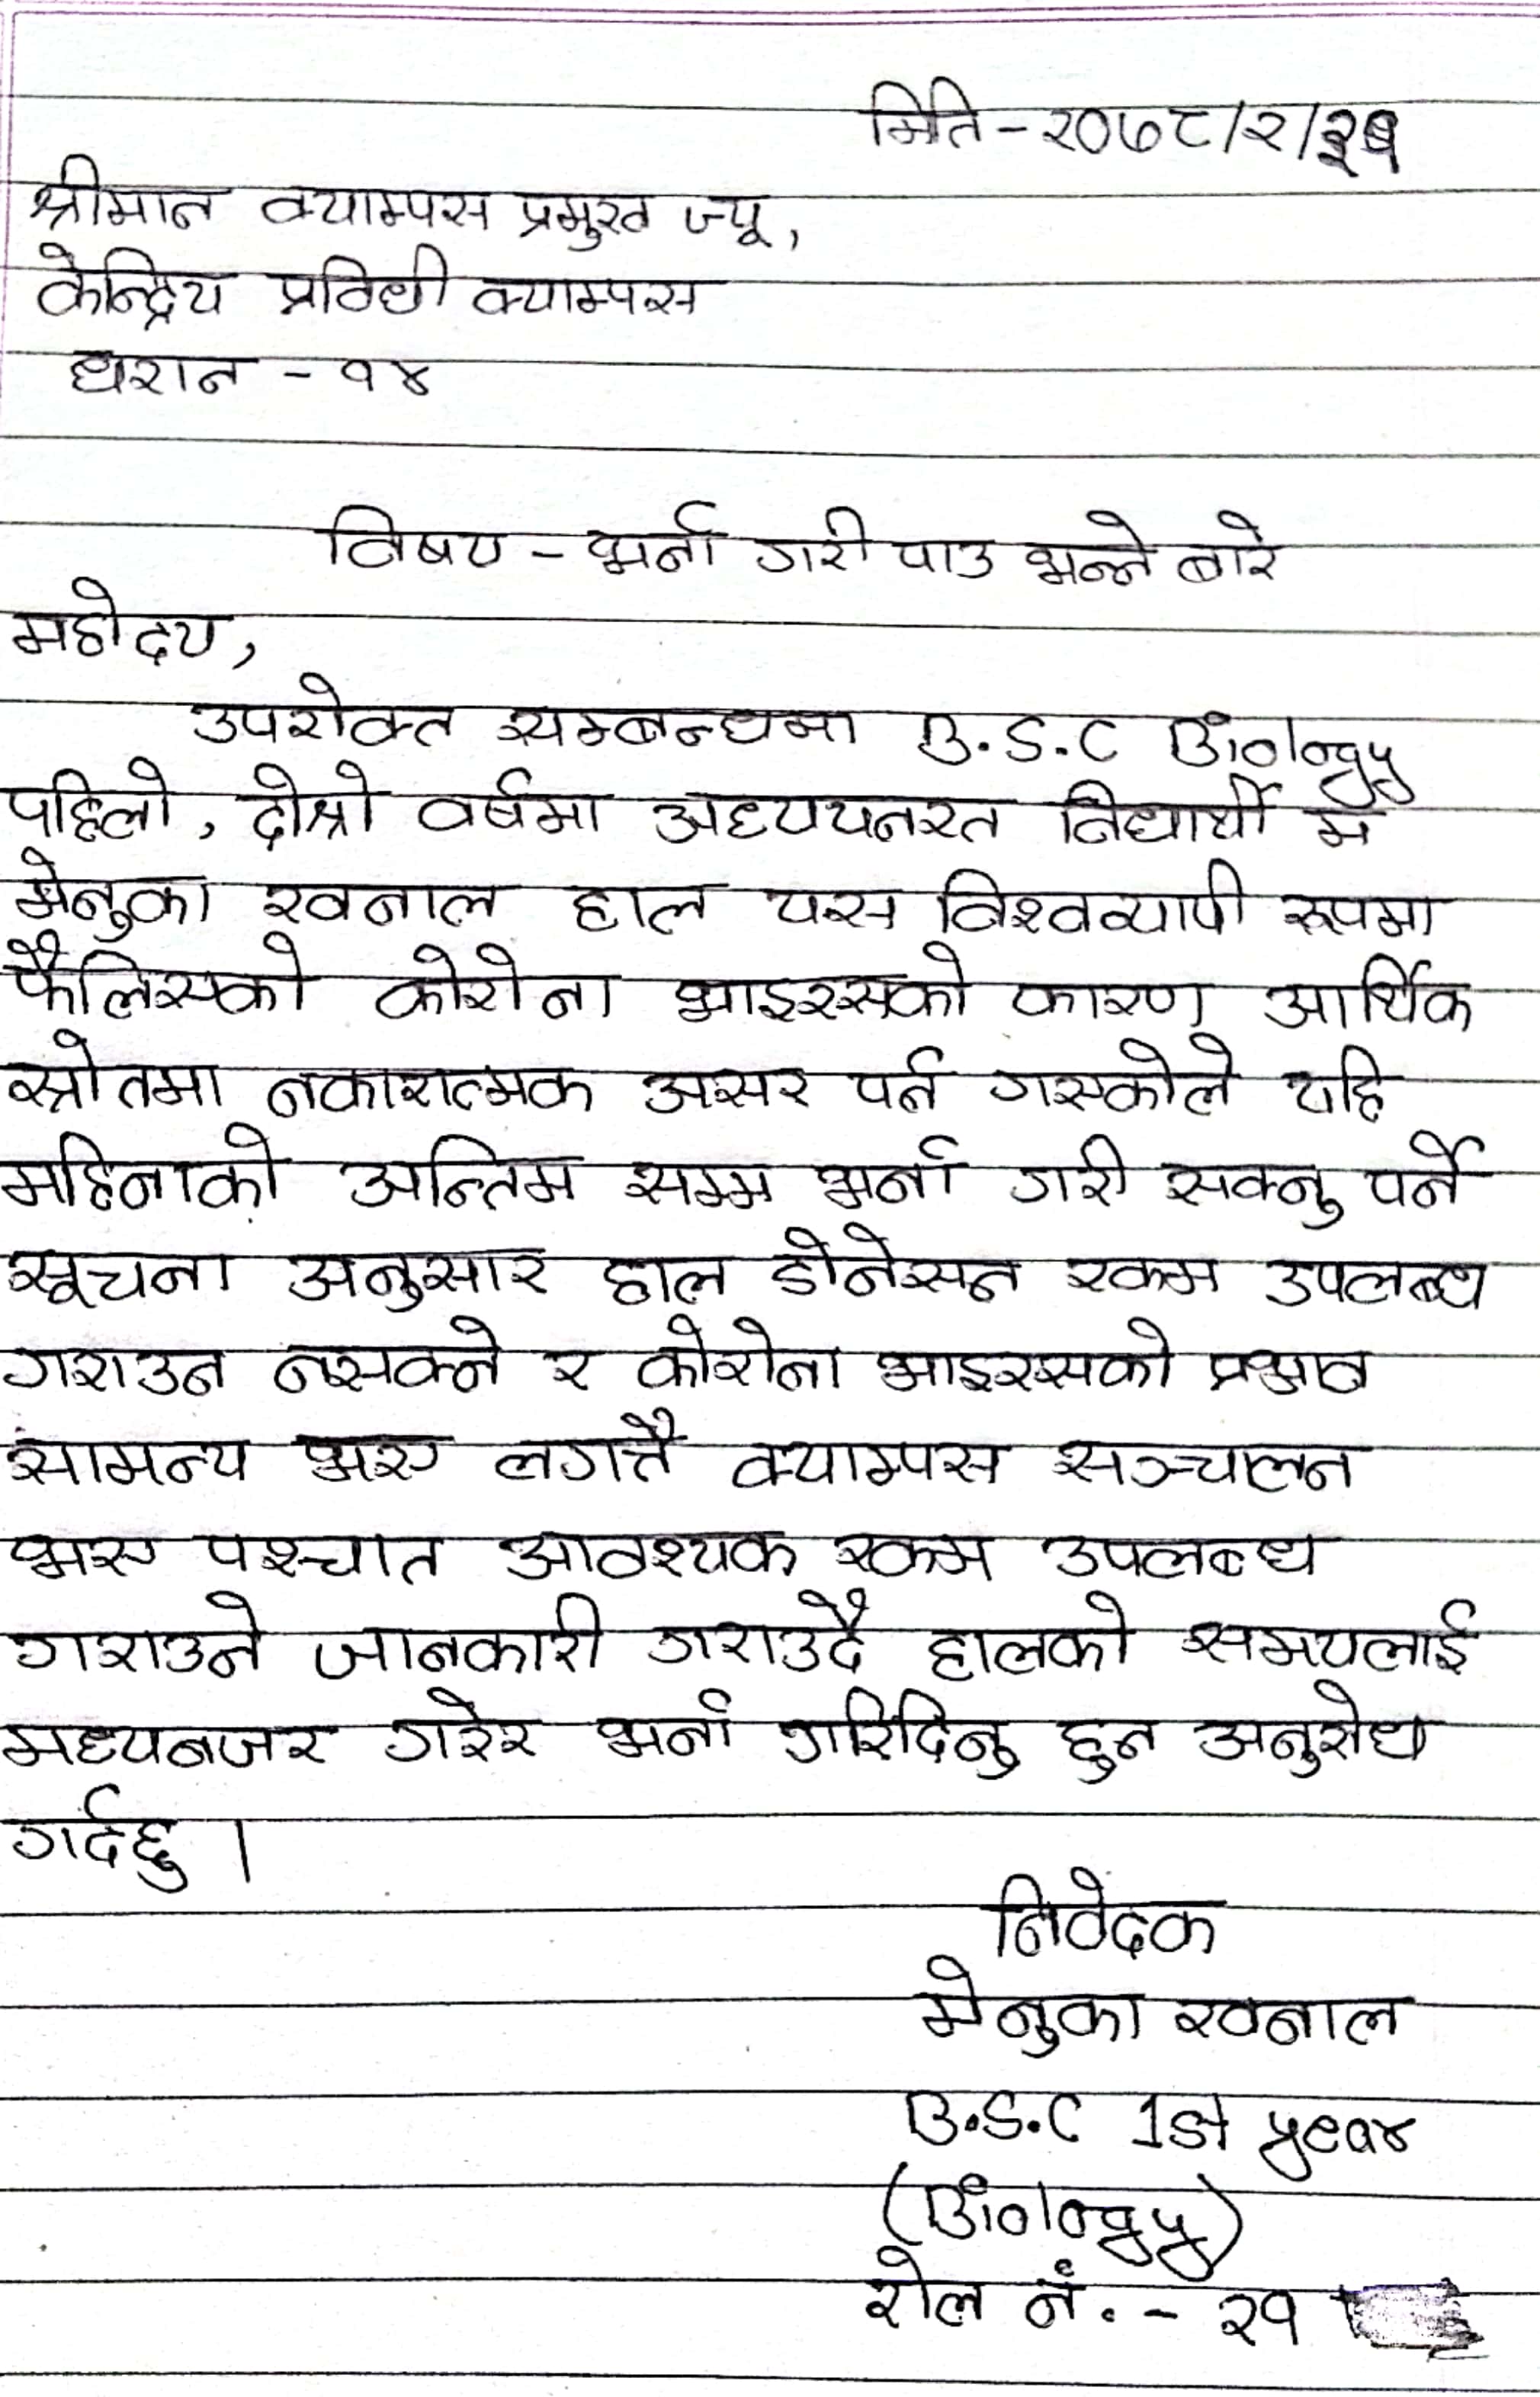 मिति - २०७८/२/३१
श्रीमान क्याम्पस प्रमुख ज्यू,
केन्द्रिय प्रविधी क्याम्पस
धरान - १४
विषय - भर्ना गरी पाउ भन्ने बारे
महोदय,
उपरोक्त सम्बन्धमा B.S.C Biology
पहिलो, दोश्रो वर्षमा अध्ययनरत विधार्थी म
मेनुका खनाल हाल यस विश्वव्यापी रूपमा
फैलिएको कोरोना भाइरसको कारण आर्थिक
स्रोतमा नकारात्मक असर पर्न गएकोले यहि
महिनाको अन्तिम सम्म भर्ना गरी सक्नु पर्ने
सूचना अनुसार हाल डोनेसन रकम उपलब्ध
गराउन नसक्ने र कोरोना भाइरसको प्रभाव
सामन्य भए लगत्तै क्याम्पस सञ्चालन
भए पश्चात आवश्यक रकम उपलब्ध
गराउने जानकारी गराउदै हालको समयलाई
मध्यनजर गरेर भर्ना गरिदिनु हुन अनुरोध
गर्दछु ।
निवेदक
मेनुका खनाल
B.S.C 1st year
(Biology)
रोल नं. - २१